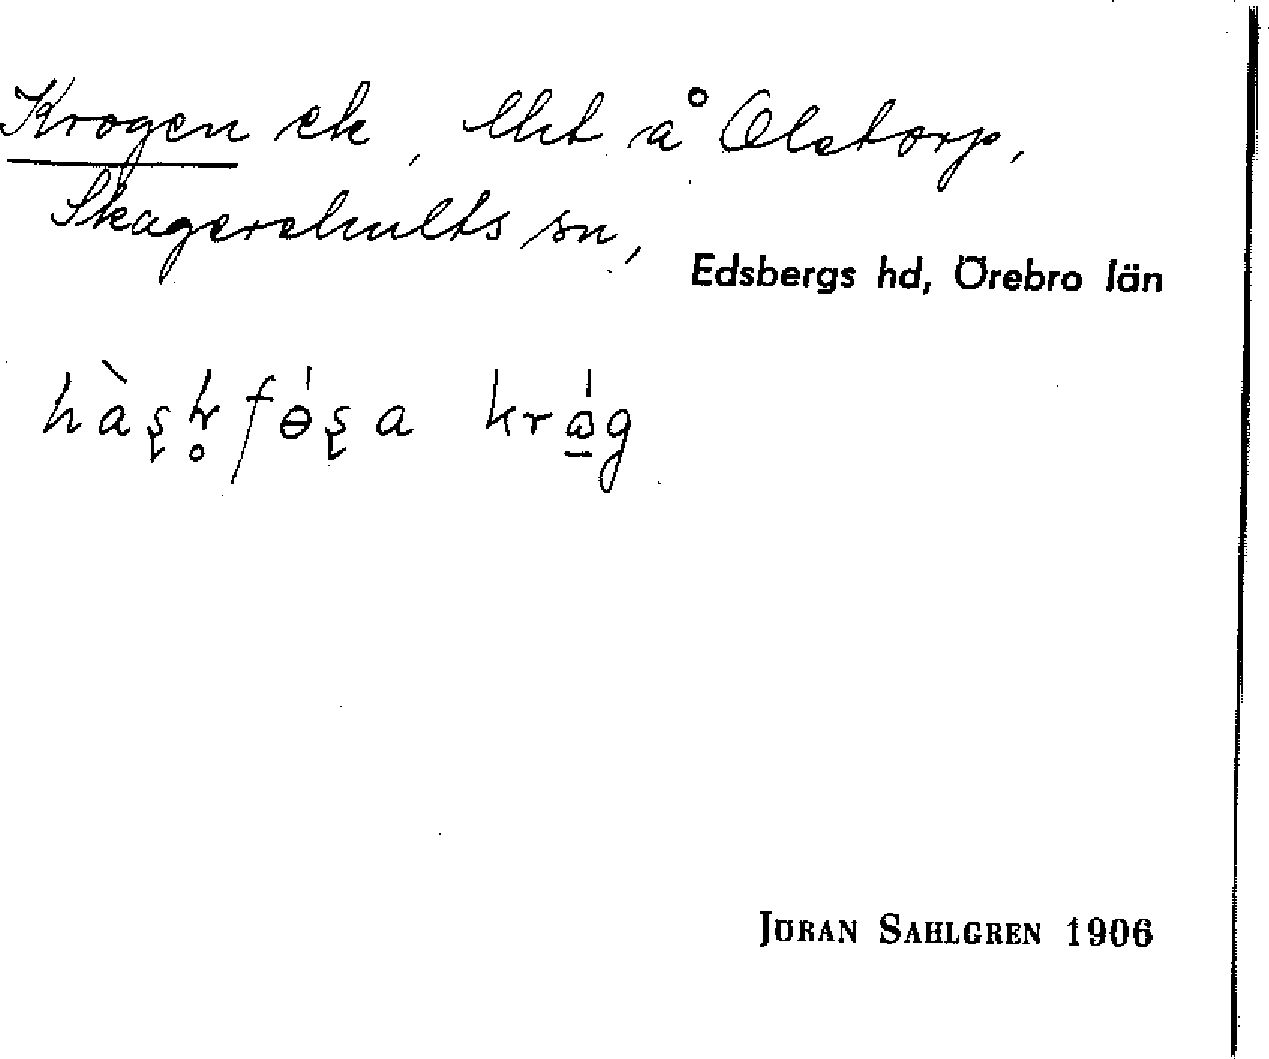 Krogen ek, lht å Olstorp,
Skagershults sn,
Edsbergs hd, Örebro län
krɷ́g
JÖRAN SAHLGREN 1906